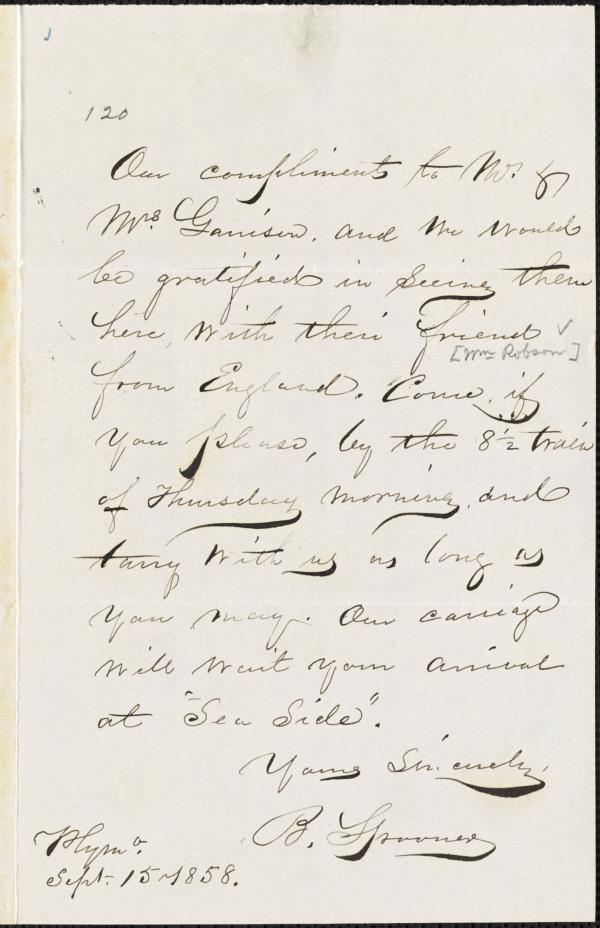 120
Our compliments to Mr. &
Mrs. Garrison, and we would
be gratified in seeing them
here, with their friend
[Wm Robson] ✓
from England. Come, if
you please, by the 8 1/2 train
of Thursday morning, and
tarry with us as long as
you may. Our carriage
will wait your arrival
at "Sea Side".
Yours Sincerely,
B. Spooner
Plymo.
Sept. 15 1858.